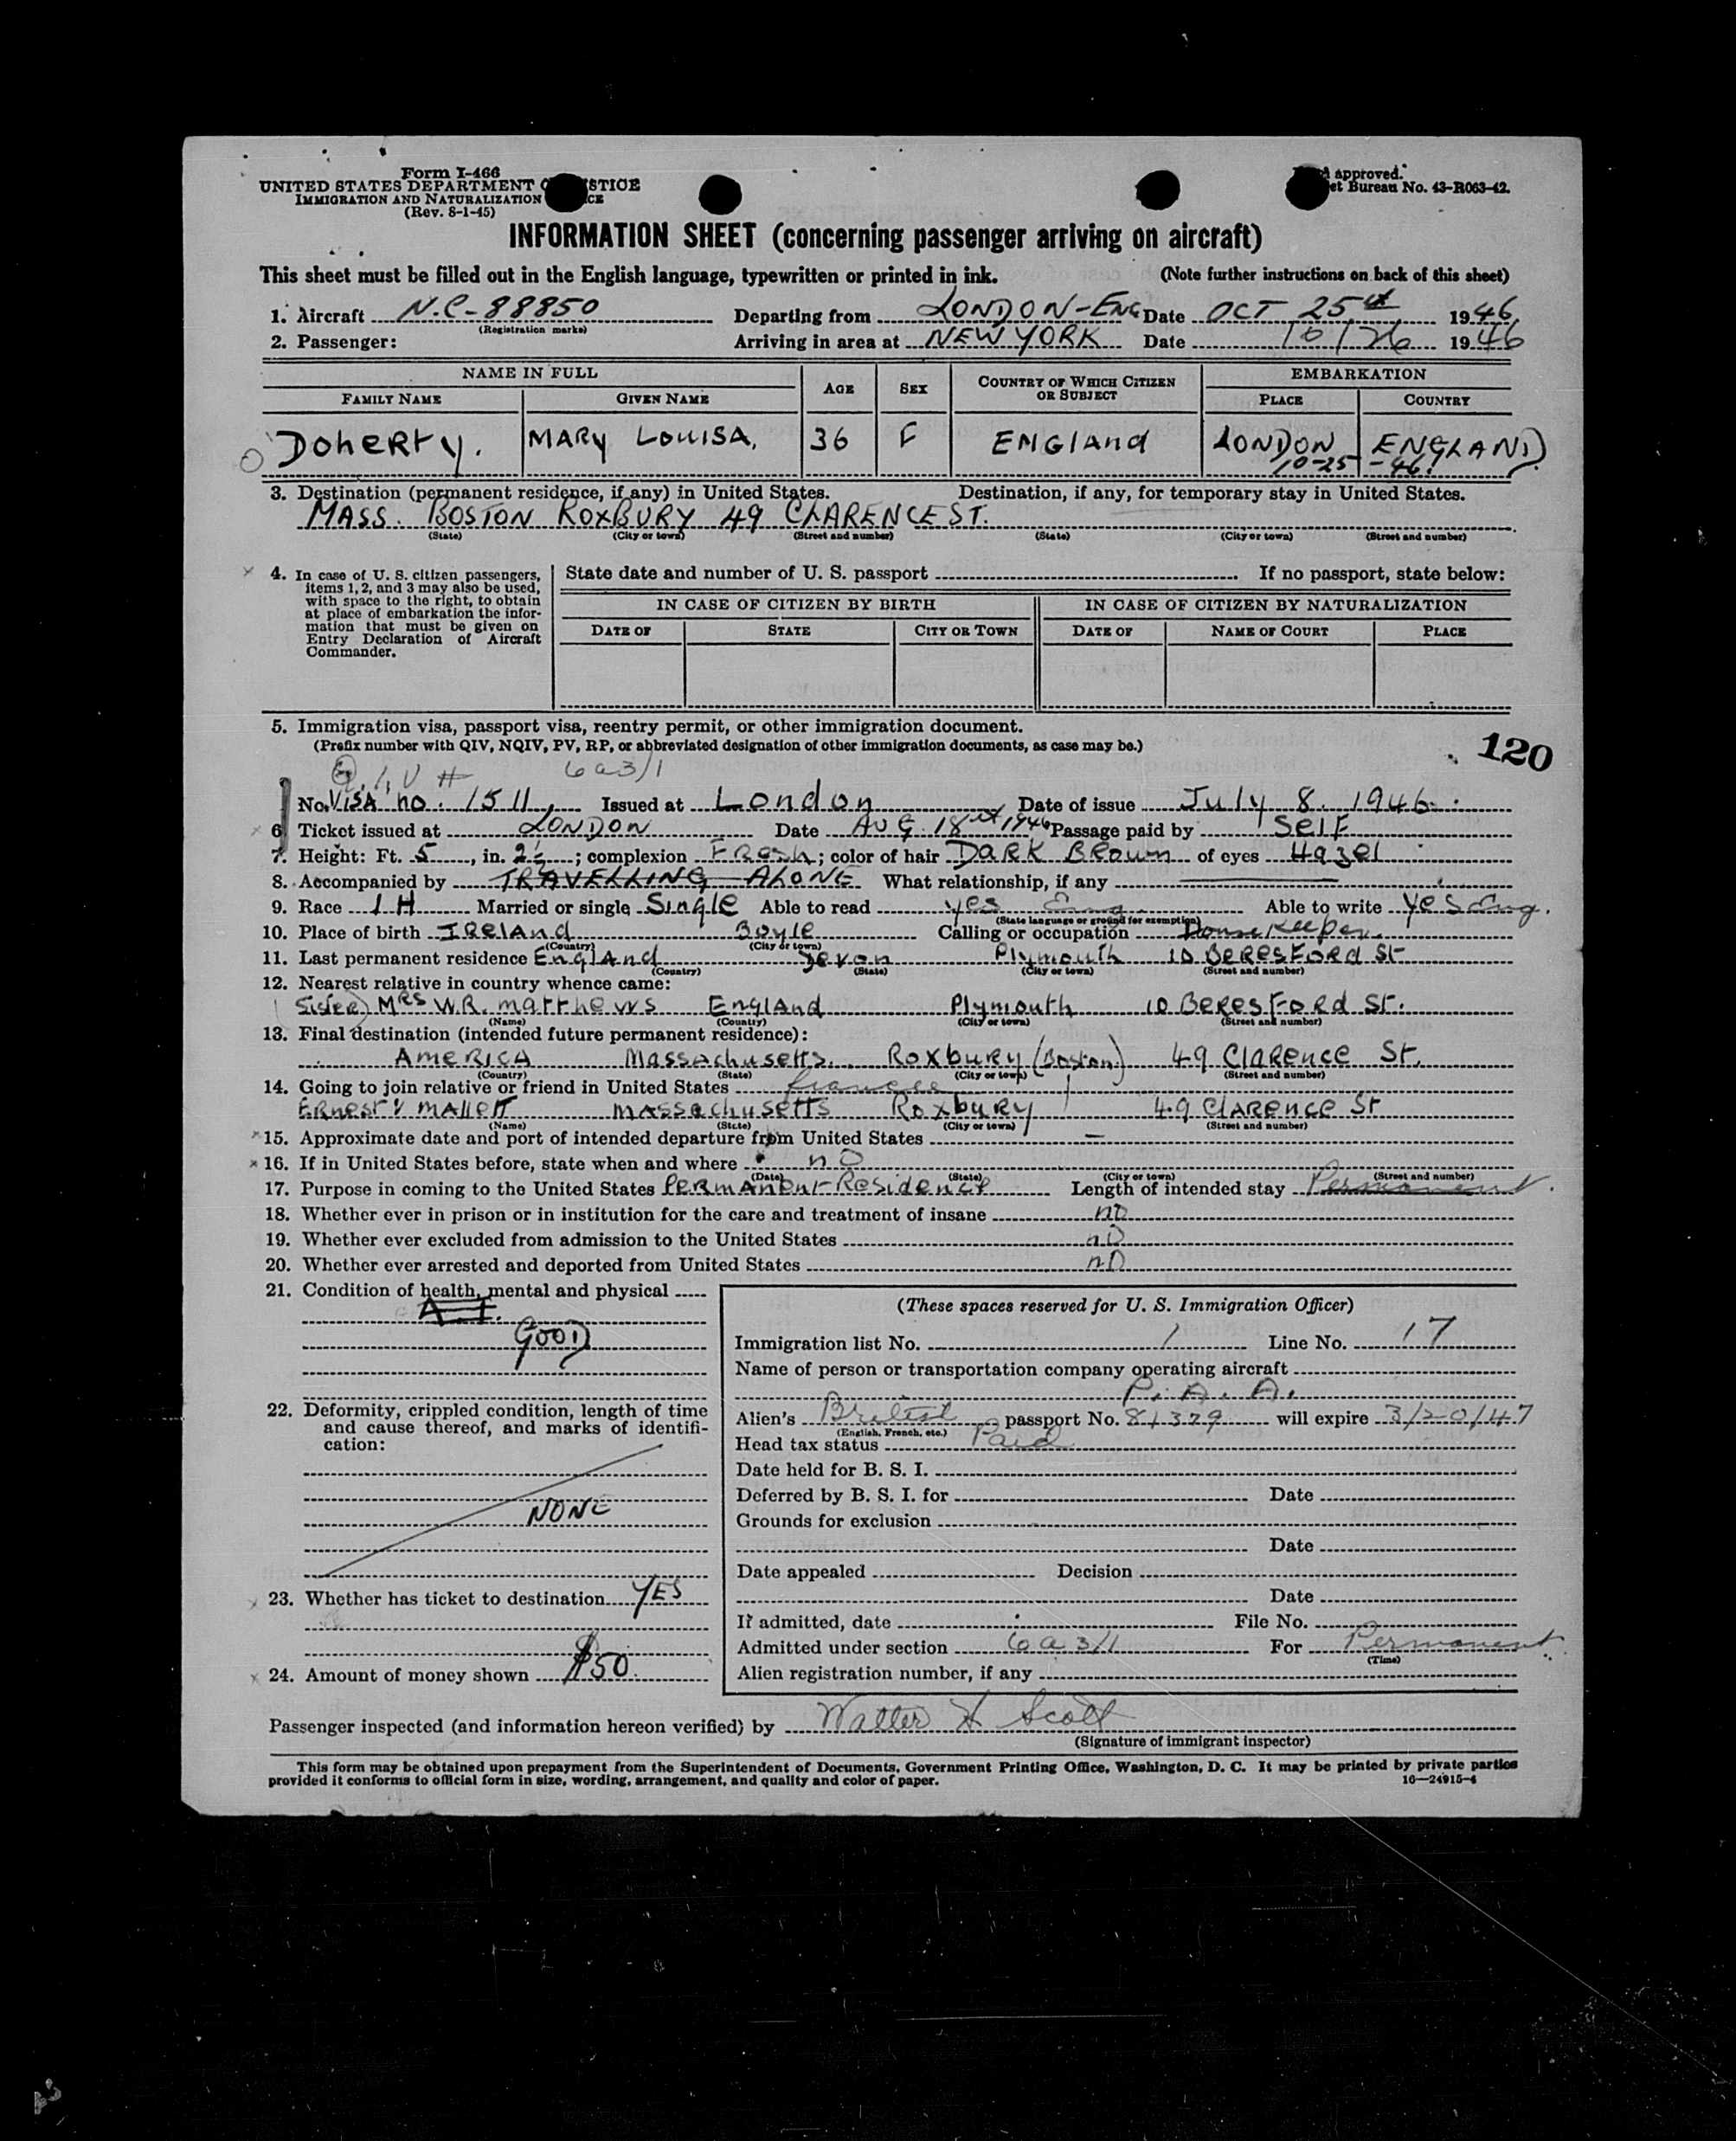 Form I-466
UNITED STATES DEPARTMENT
IMMIGRATION AND NATURALIZATION
(Rev. 8-1-45)
approved.
Bureau No. 43-R063-42.
INFORMATION SHEET (concerning passenger arriving on aircraft)
This sheet must be filled out in the English language, typewritten or printed in ink. (Note further instructions on back of this sheet)
1. Aircraft N.C-88850 Departing from LONDON-ENG Date OCT 25th 1946
(Registration marks)
2. Passenger: Arriving in area at NEW YORK Date 10/26 1946
NAME IN FULL AGE SEX COUNTRY OF WHICH CITIZEN OR SUBJECT EMBARKATION
FAMILY NAME GIVEN NAME PLACE COUNTRY
Doherty. MARY LOUISA, 36 F ENGLAND LONDON ENGLAND
10-25-46
3. Destination (permanent residence, if any) in United States. Destination, if any, for temporary stay in United States.
MASS. BOSTON ROXBURY 49 CLARENCE ST.
(State) (City or town) (Street and number) (State) (City or town) (Street and number)
4. In case of U. S. citizen passengers, items 1, 2, and 3 may also be used, with space to the right, to obtain at place of embarkation the information that must be given on Entry Declaration of Aircraft Commander.
State date and number of U. S. passport If no passport, state below:
IN CASE OF CITIZEN BY BIRTH IN CASE OF CITIZEN BY NATURALIZATION
DATE OF STATE CITY OR TOWN DATE OF NAME OF COURT PLACE
5. Immigration visa, passport visa, reentry permit, or other immigration document.
(Prefix number with QIV, NQIV, PV, RP, or abbreviated designation of other immigration documents, as case may be.)
120
6a3/1
No. VISA no. 1511 Issued at London Date of issue July 8. 1946.
6. Ticket issued at LONDON Date AUG 18th 1946 Passage paid by Self
7. Height: Ft. 5, in. 2½; complexion Fresh; color of hair DARK BROWN of eyes Hazel
8. Accompanied by TRAVELLING ALONE What relationship, if any
9. Race IH Married or single Single Able to read yes Eng. Able to write yes Eng.
(State language or ground for exemption)
10. Place of birth IRELAND Boyle Calling or occupation Housekeeper.
(Country) (City or town)
11. Last permanent residence England Devon Plymouth 10 BERESFORD St
(Country) (State) (City or town) (Street and number)
12. Nearest relative in country whence came:
Sister) MRS W.R. Matthews England Plymouth 10 BERESFORD St.
(Name) (Country) (City or town) (Street and number)
13. Final destination (intended future permanent residence):
AMERICA Massachusetts. Roxbury (Boston) 49 Clarence St.
(Country) (State) (City or town) (Street and number)
14. Going to join relative or friend in United States
MALLETT MASSACHUSETTS ROXBURY 49 CLARENCE St
(Name) (State) (City or town) (Street and number)
15. Approximate date and port of intended departure from United States —
16. If in United States before, state when and where no
(Date) (State) (City or town) (Street and number)
17. Purpose in coming to the United States Permanent Residence Length of intended stay Permanent.
18. Whether ever in prison or in institution for the care and treatment of insane no
19. Whether ever excluded from admission to the United States no
20. Whether ever arrested and deported from United States no
21. Condition of health, mental and physical
GOOD
22. Deformity, crippled condition, length of time and cause thereof, and marks of identification:
NONE
23. Whether has ticket to destination YES
24. Amount of money shown $50.
(These spaces reserved for U. S. Immigration Officer)
Immigration list No. 1 Line No. 17
Name of person or transportation company operating aircraft
P. A. A.
Alien's British passport No. 81379 will expire 3/20/47
(English, French, etc.)
Head tax status Paid
Date held for B. S. I.
Deferred by B. S. I. for Date
Grounds for exclusion
Date
Date appealed Decision
Date
If admitted, date File No.
Admitted under section 6a3/1 For Permanent
(Time)
Alien registration number, if any
Passenger inspected (and information hereon verified) by Walter H Scott
(Signature of immigrant inspector)
This form may be obtained upon prepayment from the Superintendent of Documents, Government Printing Office, Washington, D. C. It may be printed by private parties
provided it conforms to official form in size, wording, arrangement, and quality and color of paper. 16—24915-4